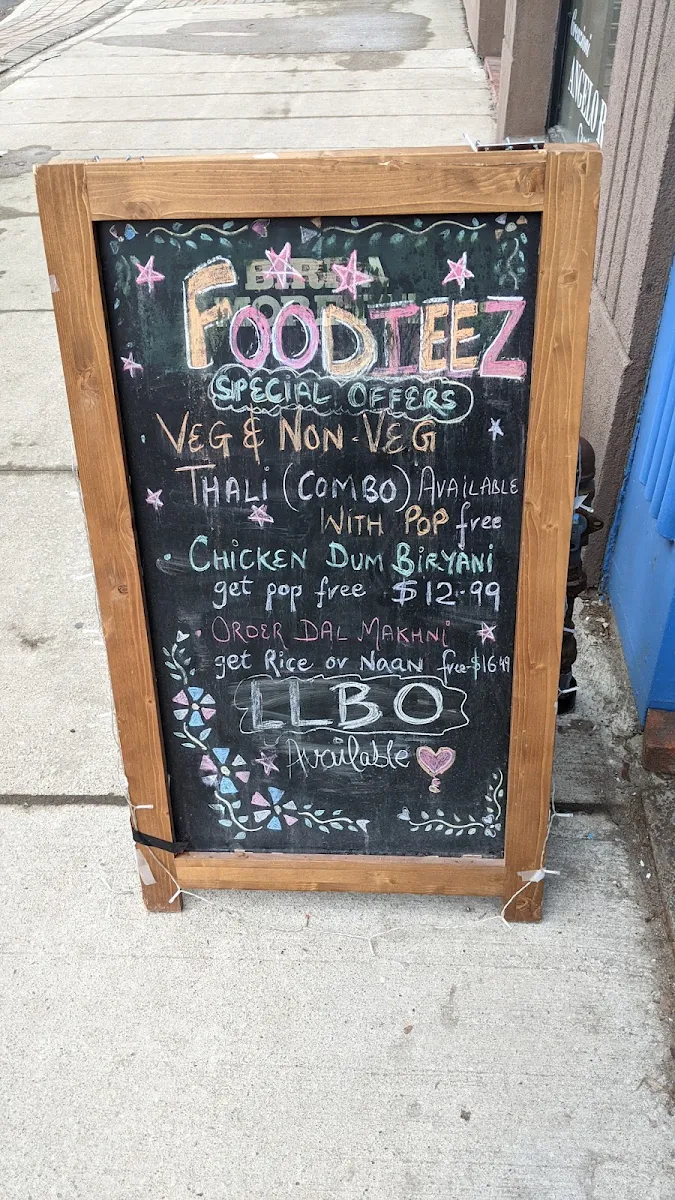 FOODIEEZ
SPECIAL OFFERS
VEG & NON-VEG
THALI (COMBO) AVAILABLE
WITH POP free
• CHICKEN DUM BIRYANI
get pop free $12.99
• ORDER DAL MAKHNI
get Rice or Naan free $16.49
LLBO
Available